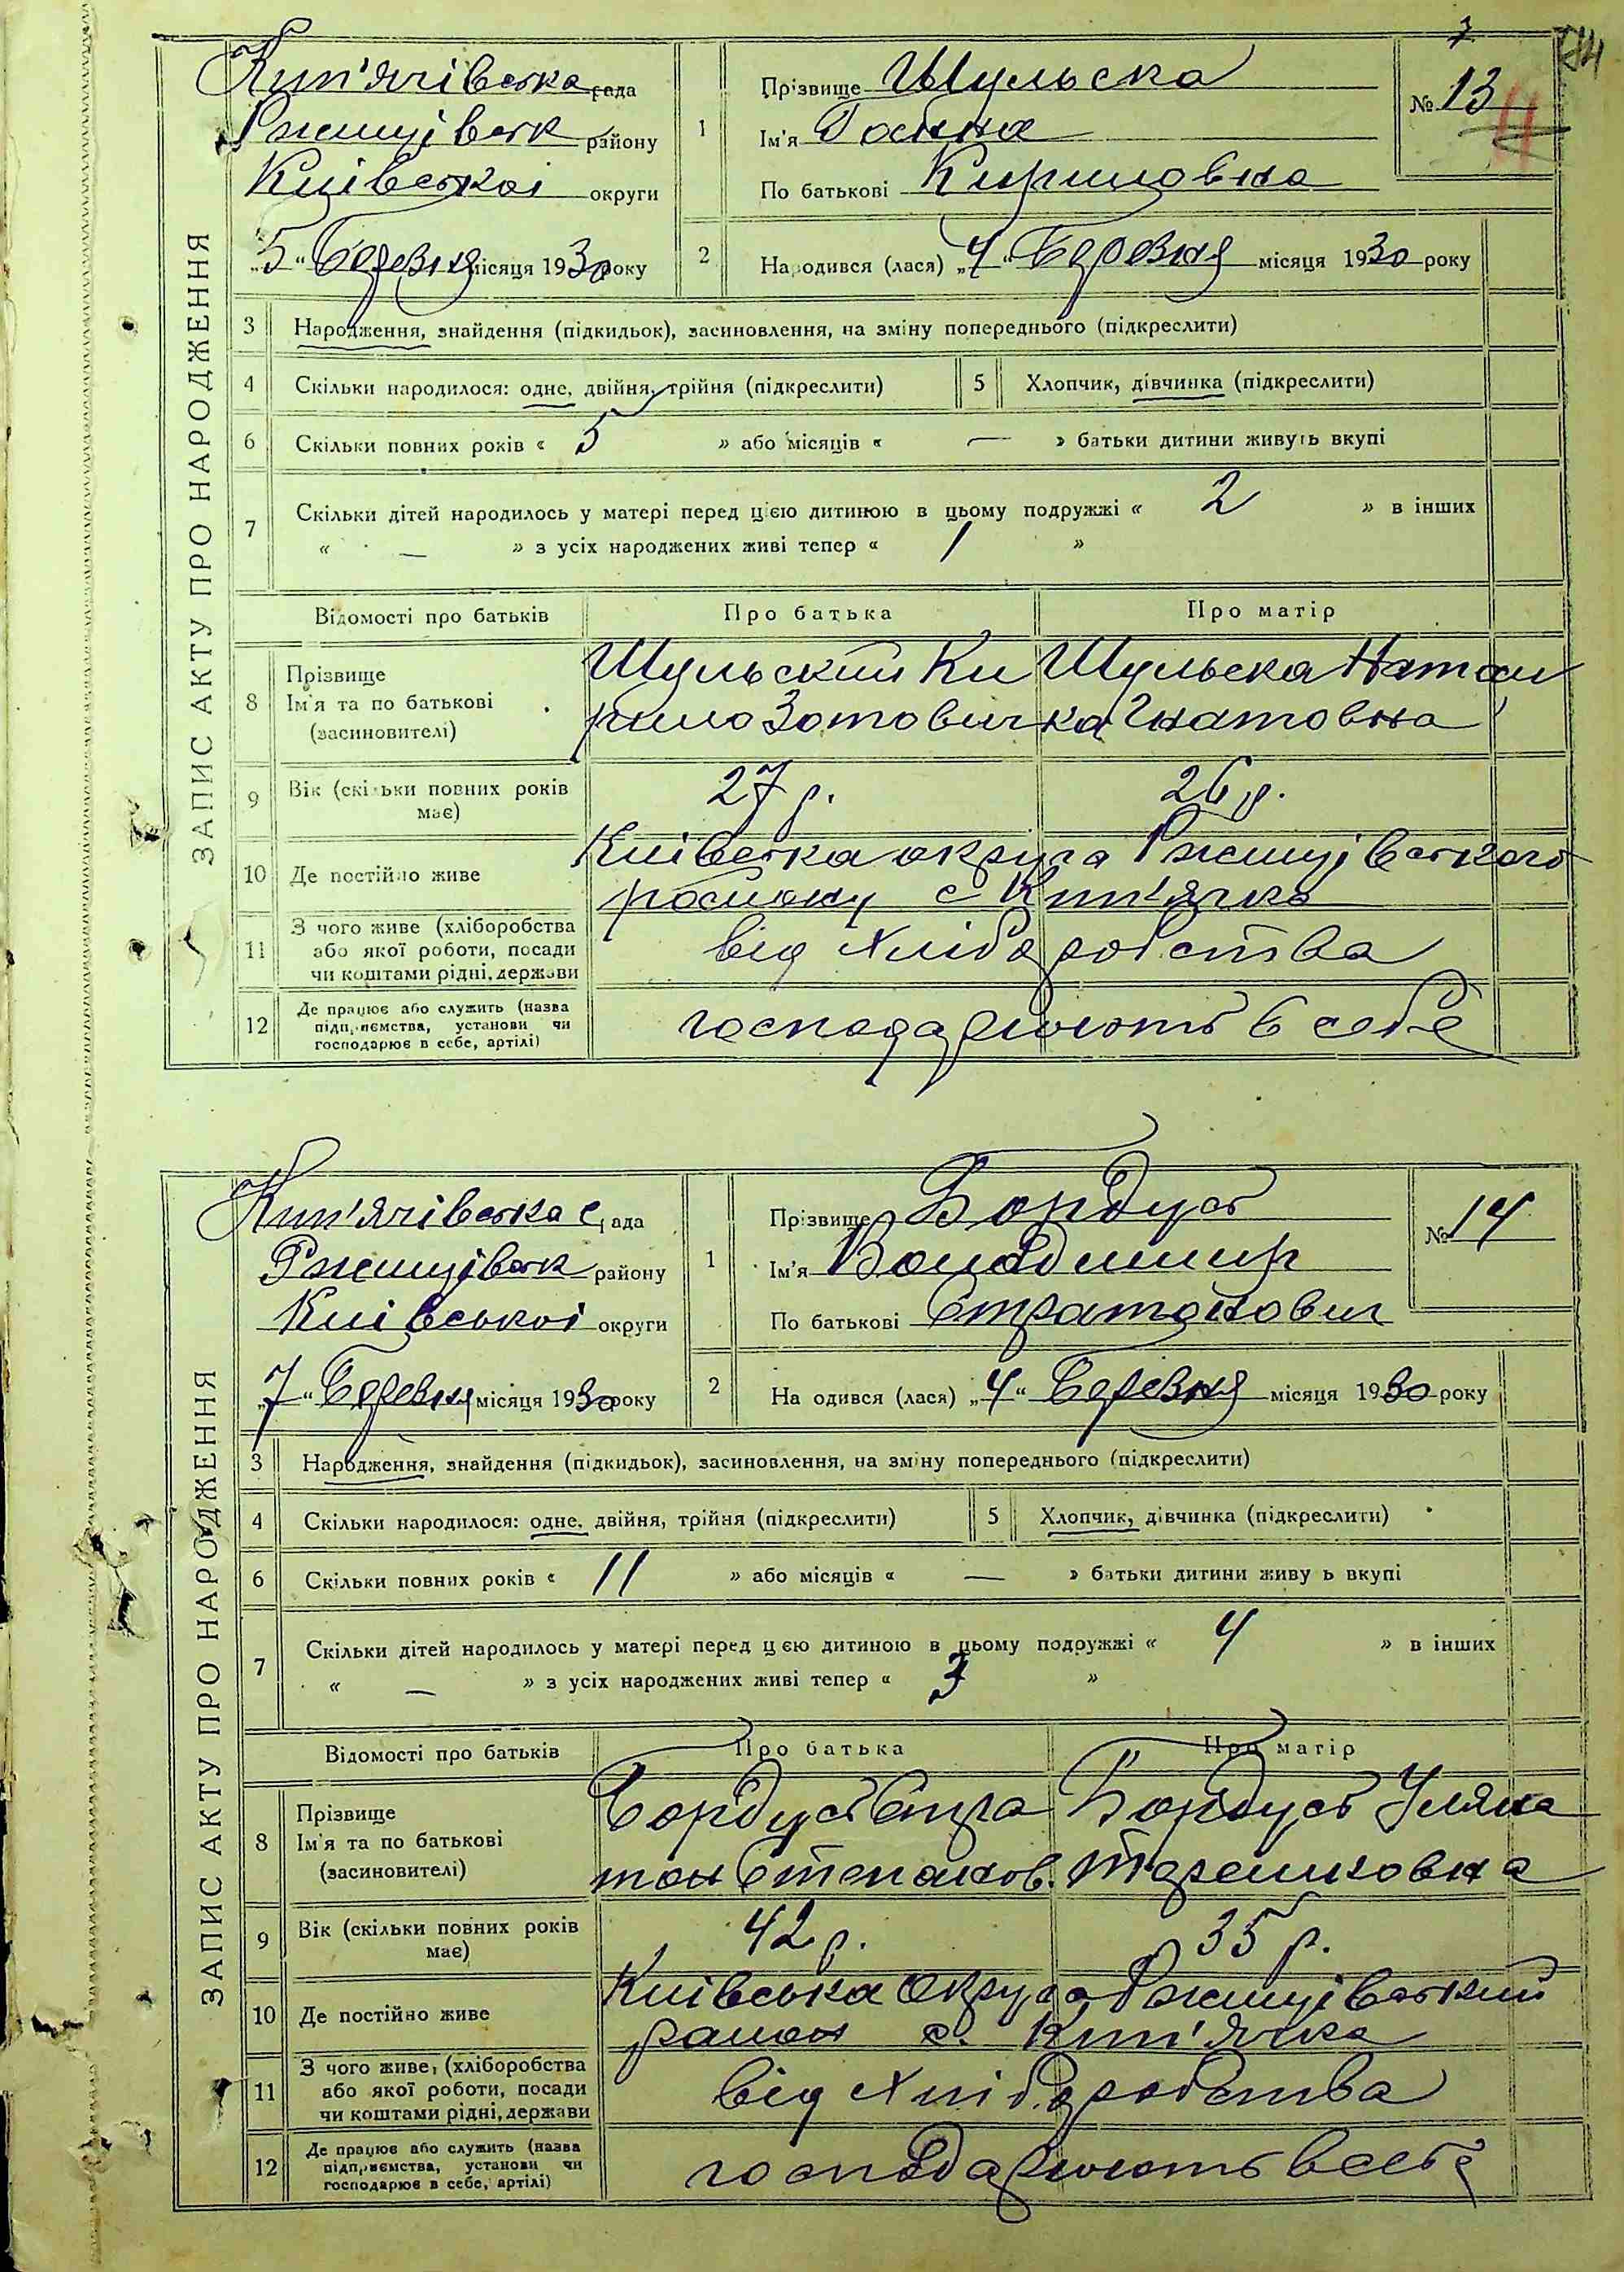 7
ЗАПИС АКТУ ПРО НАРОДЖЕННЯ
Кип'ячівська рада
Ржищівськ району
Київськоі округи
„5“ Березня місяця 1930 року
1
Прізвище Шульска
Ім'я Ганна
По батькові Кириловна
№ 13
2
Народився (лася) „4“ Березня місяця 1930 року
3 Народження, знайдення (підкидьок), засиновлення, на зміну попереднього (підкреслити)
4 Скільки народилося: одне, двійня, трійня (підкреслити) 5 Хлопчик, дівчинка (підкреслити)
6 Скільки повних років « 5 » або місяців « — » батьки дитини живуть вкупі
7 Скільки дітей народилось у матері перед цією дитиною в цьому подружжі « 2 » в інших
« — » з усіх народжених живі тепер « 1 »
Відомості про батьків Про батька Про матір
8 Прізвище
Ім'я та по батькові
(засиновителі)
Шульский Ки
рило Зотович
Шульска Натал
ка Гнатовна
9 Вік (скільки повних років
має)
27 р. 26 р.
10 Де постійно живе
Київська округа Ржищівського
району с Кип'ячка
11 З чого живе (хліборобства
або якої роботи, посади
чи коштами рідні, держави
від хліборобства
12 Де працює або служить (назва
підприємства, установи чи
господарює в себе, артілі)
господарюють в себе
ЗАПИС АКТУ ПРО НАРОДЖЕННЯ
Кип'ячівська с рада
Ржищівськ району
Київськоі округи
„7“ Березня місяця 1930 року
1
Прізвище Бордусь
Ім'я Володимир
По батькові Стратонович
№ 14
2
Народився (лася) „4“ Березня місяця 1930 року
3 Народження, знайдення (підкидьок), засиновлення, на зміну попереднього (підкреслити)
4 Скільки народилося: одне, двійня, трійня (підкреслити) 5 Хлопчик, дівчинка (підкреслити)
6 Скільки повних років « 11 » або місяців « — » батьки дитини живуть вкупі
7 Скільки дітей народилось у матері перед цією дитиною в цьому подружжі « 4 » в інших
« — » з усіх народжених живі тепер « 3 »
Відомості про батьків Про батька Про матір
8 Прізвище
Ім'я та по батькові
(засиновителі)
Бордусь Стра
тон Степанов.
Бордусь Уляна
Терешковна
9 Вік (скільки повних років
має)
42 р. 35 р.
10 Де постійно живе
Київська округа Ржищівський
район с. Кип'ячка
11 З чого живе, (хліборобства
або якої роботи, посади
чи коштами рідні, держави
від хліборобства
12 Де працює або служить (назва
підприємства, установи чи
господарює в себе, артілі)
господарюють в себе